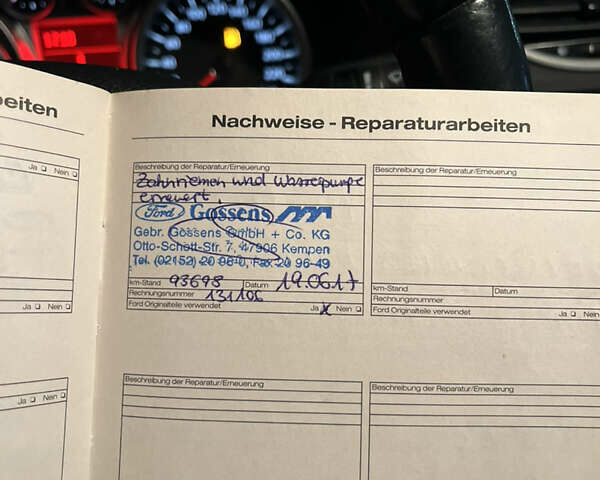 beiten
Ja Nein
Ja Nein
Ja Nein
Nachweise - Reparaturarbeiten
Beschreibung der Reparatur/Erneuerung
Zahnriemen und Wasserpumpe
erneuert.
Ford Gossens
Gebr. Gossens GmbH + Co. KG
Otto-Schott-Str. 7, 47906 Kempen
Tel. (02152) 20 96-0, Fax 20 96-49
km-Stand 93698 Datum 19.06.17
Rechnungsnummer 131106
Ford Originalteile verwendet Ja x Nein
Beschreibung der Reparatur/Erneuerung
km-Stand Datum
Rechnungsnummer
Ford Originalteile verwendet
Beschreibung der Reparatur/Erneuerung
Beschreibung der Reparatur/Erneuerung